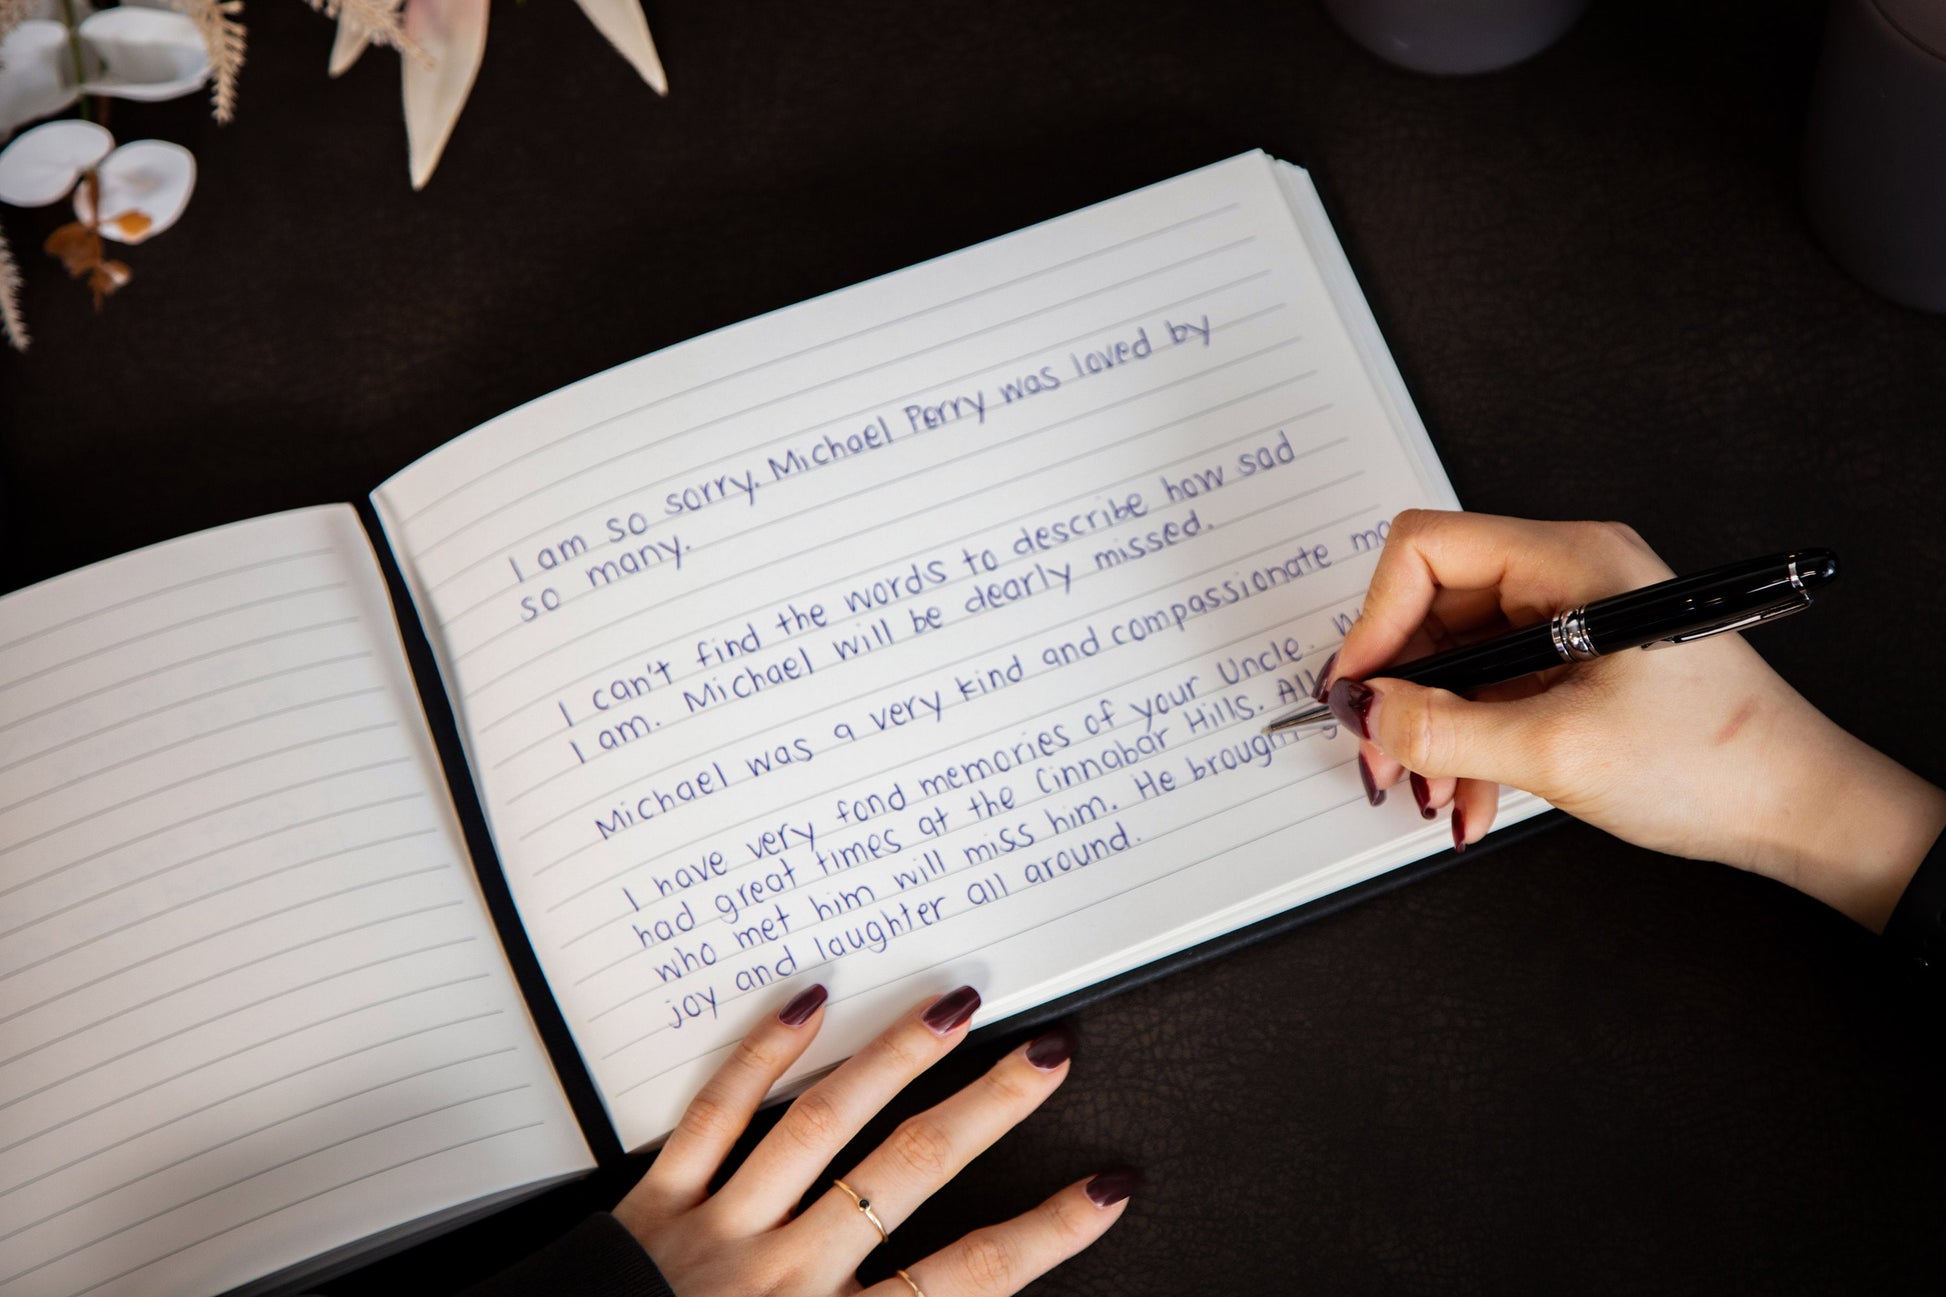 I am so sorry. Michael Perry was loved by
so many.
I can't find the words to describe how sad
I am. Michael will be dearly missed.
Michael was a very kind and compassionate
I have very fond memories of your Uncle.
had great times at the Cinnabar Hills.
who met him will miss him. He
joy and laughter all around.